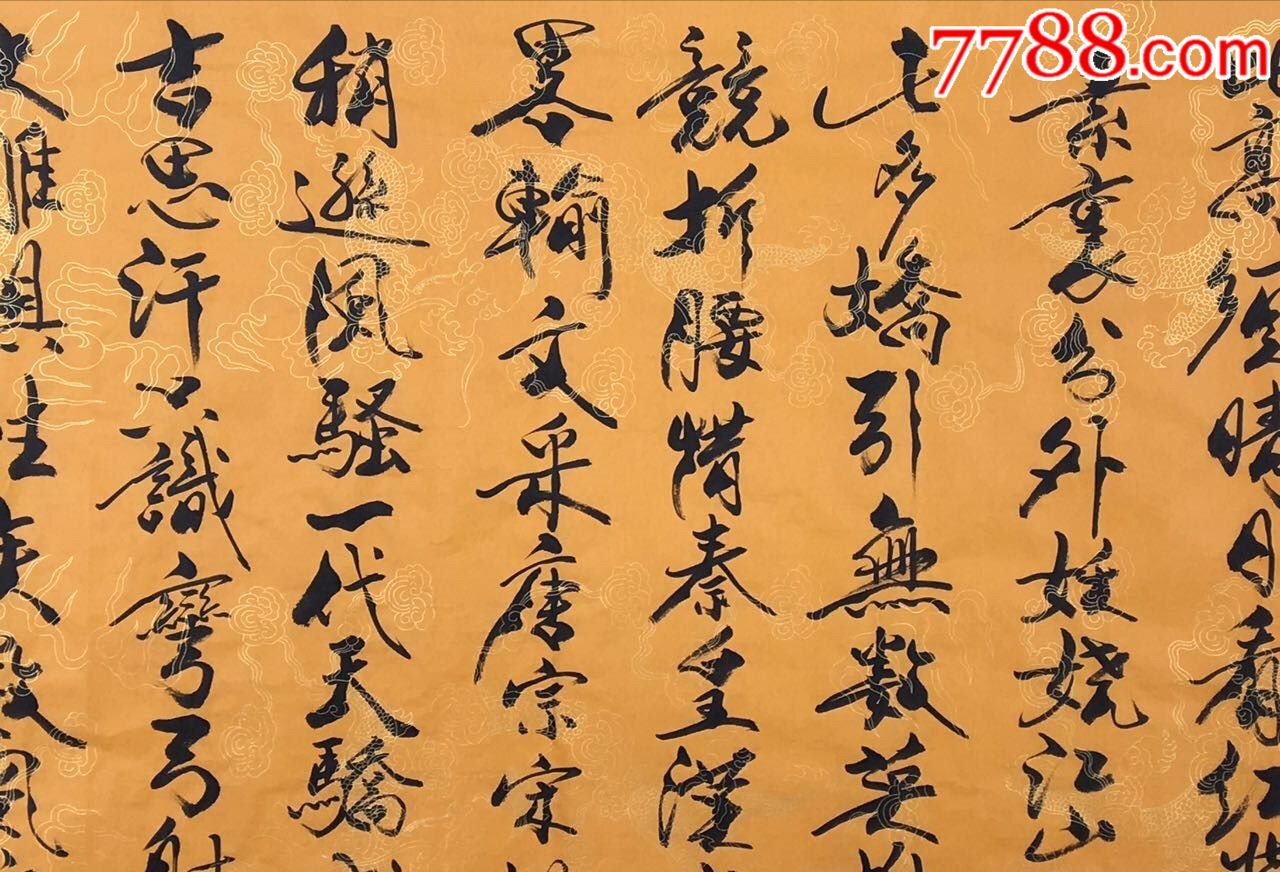 7788.com
比高須晴日看紅
素裹分外妖娆江山
此多嬌引無数英
競折腰惜秦皇漢
畧輸文采唐宗宋
稍遜風騷一代天驕
吉思汗只識彎弓射
大雕俱往矣数風